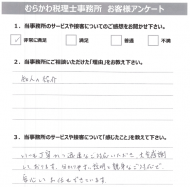 むらかわ税理士事務所　お客様アンケート
1．当事務所のサービスや接客についてのご感想をお聞かせ下さい。
☑ 非常に満足　□ 満足　□ 普通　□ 不満
2．当事務所にご相談いただいた「理由」をお教え下さい。
知人の紹介
3．当事務所のサービスや接客について「感じたこと」を教えて下さい。
いつも丁寧かつ迅速なご対応いただき、大変感謝
しております。